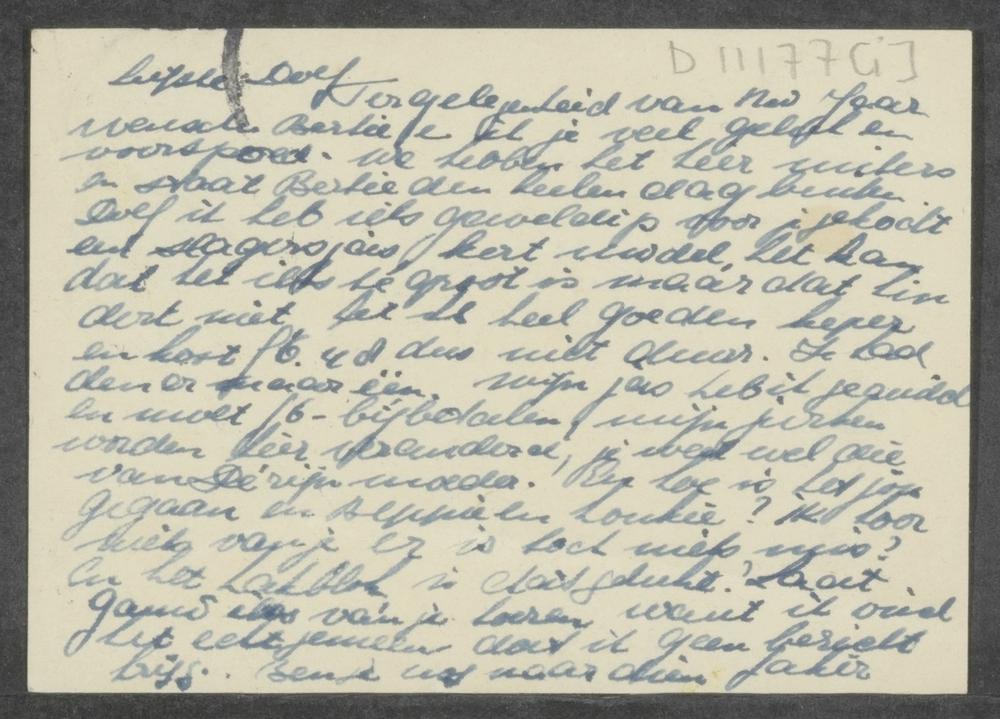 D 11177 [i]
liefste Dolf
Ter gelegenheid van Nw Jaar
wensch Bertie & ik je veel geluk en
voorspoed. We hebben het hier
en staat Bertie den heelen dag
Dolf ik heb iets geweldigs voor je gekocht
een slagersjas kort model, het kan
dat het iets te groot is maar dat hin
dert niet, het is heel goeden keper
en kost f6. dus niet duur. Ik had
den er maar één. mijn jas heb ik geruild
en moet f6- bijbetalen, mijn jurken
worden hier veranderd, je weet wel die
van moeder. En hoe is het jou
gegaan en Beppie en ? ik hoor
niets van je er is toch niets mis?
En het is ? Laat
gauw iets van je hooren, want ik vind
het echt gemeen dat ik geen bericht
krijg. Benje nog naar dien